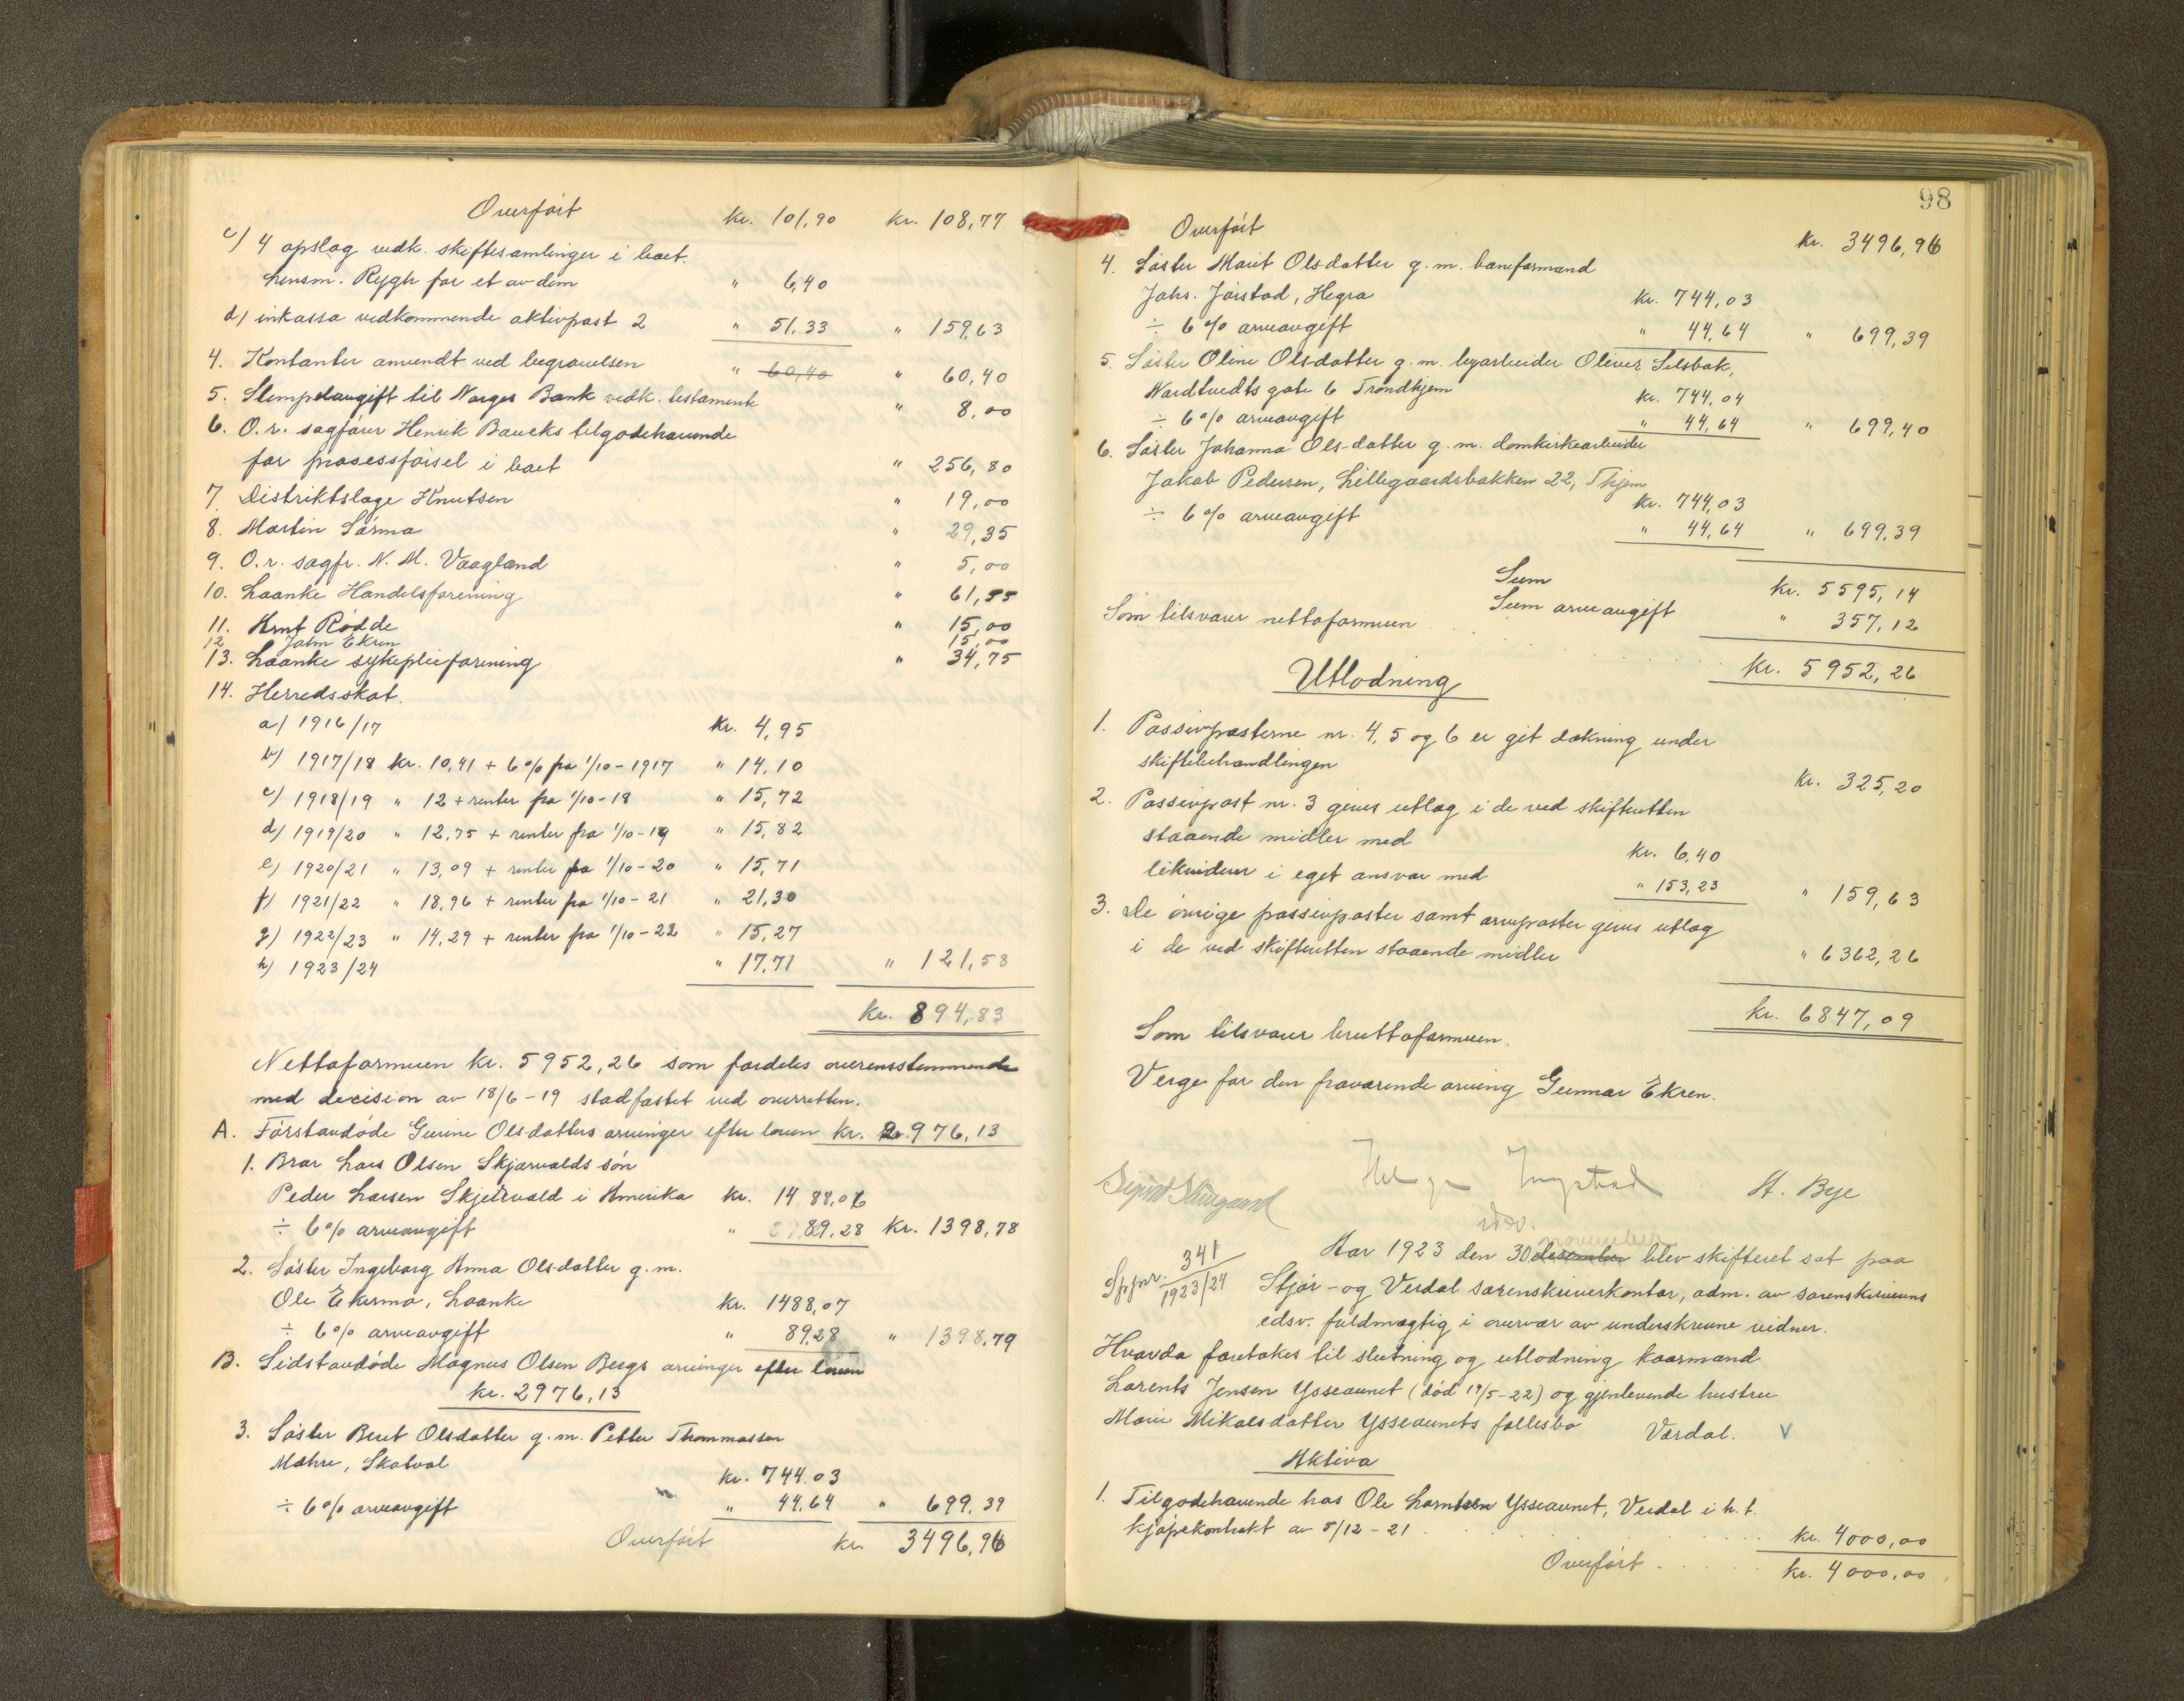 Overført kr. 101,90 kr. 108,77
c/ 4 opslag vedk. skiftesamlinger i boet.
Lensm. Rygh for et av dem " 6,40
d/ inkasso vedkommende aktivpost 2 " 51,33 " 159,63
4. Kontanter anvendt ved begravelsen " 60,40 " 60,40
5. Stempelavgift til Norges Bank vedk. testamente " 8,00
6. O.r. sagfører Henrik Baucks tilgodehavende
for prosessførsel i boet " 256,80
7. Distriktslæge Knutsen " 19,00
8. Martin Sørmo " 29,35
9. O.r. sagfr. N. M. Vaagland " 5,00
10. Laanke Handelsforening " 61,55
11. Arnt Rødde " 15,00
12 John Ekren 15,00
13. Laanke sykepleieforening " 34,75
14. Herredsskat.
a/ 1916/17 kr. 4,95
b/ 1917/18 kr. 10,41 + 6% fra 1/10-1917 " 14,10
c/ 1918/19 " 12 + renter fra 1/10-18 " 15,72
d/ 1919/20 " 12,75 + renter fra 1/10-19 " 15,82
e/ 1920/21 " 13,09 + renter fra 1/10-20 " 15,71
f/ 1921/22 " 18,96 + renter fra 1/10-21 " 21,30
g/ 1922/23 " 14,29 + renter fra 1/10-22 " 15,27
h/ 1923/24 " 17,71 " 121,58
kr. 894,83
Nettoformuen kr. 5952,26 som fordeles overensstemmende
med decision av 18/6-19 stadfæstet ved overretten.
A. Førstavdøde Gurine Olsdatters arvinger efter loven kr. 2976,13
1. Bror Lars Olsen Skjærvolds søn
Peder Larsen Skjelvold i Amerika kr. 1488,06
÷ 6% arveavgift " 89,28 kr. 1398,78
2. Søster Ingeborg Anna Olsdatter g.m.
Ole Ekermo, Laanke kr. 1488,07
÷ 6% arveavgift " 89,28 " 1398,79
B. Sidstavdøde Magnus Olsen Bergs arvinger efter loven
kr. 2976,13
3. Søster Beret Olsdatter g.m. Petter Thommassen
Mæhre, Skatval kr. 744.03
÷ 6% arveavgift " 44,64 " 699,39
Overført kr. 3496,96
98
Overført kr. 3496,96
4. Søster Marit Olsdatter g.m. baneformand
Johs. Jørstad, Hegra kr. 744,03
÷ 6% arveavgift " 44,64 " 699,39
5. Søster Oline Olsdatter g.m. byarbeider Oliver Selsbak,
Nardtvedts gate 6 Trondhjem kr. 744,04
÷ 6% arveavgift " 44,64 " 699,40
6. Søster Johanna Olsdatter g.m. domkirkearbeider
Jakob Pedersen, Lillegaardsbakken 22, Thjem kr. 744,03
÷ 6% arveavgift " 44,64 " 699,39
Sum kr. 5595,14
Sum arveavgift " 357,12
Som tilsvarer nettoformuen kr. 5952,26
Utlodning
1. Passivposterne nr. 4, 5 og 6 er git dækning under
skiftebehandlingen kr. 325,20
2. Passivpost nr. 3 gives utlæg i de ved skifteretten
staaende midler med kr. 6,40
likviderer i eget ansvar med " 153,23 " 159,63
3. De øvrige passivposter samt arveposter gives utlæg
i de ved skifteretten staaende midler " 6362,26
kr. 6847,09
Som tilsvarer bruttoformuen.
Verge for den fraværende arving Gunnar Ekren.
Helge Ingstad
A. Bye
edsv.
Aar 1923 den 30 desember november blev skifteret sat paa
Sp.jnr. 341/1923/24 Stjør- og Verdal sorenskriverkontor, adm. av sorenskriverens
edsv. fuldmægtig i overvær av underskrevne vidner.
Hvorda foretokes til slutning og utlodning kaarmand
Lorents Jensen Ysseaunet (død 19/5-22) og gjenlevende hustru
Marie Mikalsdatter Ysseaunets fællesbo Værdal. V
Aktiva
1. Tilgodehavende hos Ole Lorntsen Ysseaunet, Verdal i h.t.
kjøpekontrakt av 5/12-21 kr. 4000,00
Overført kr. 4000,00